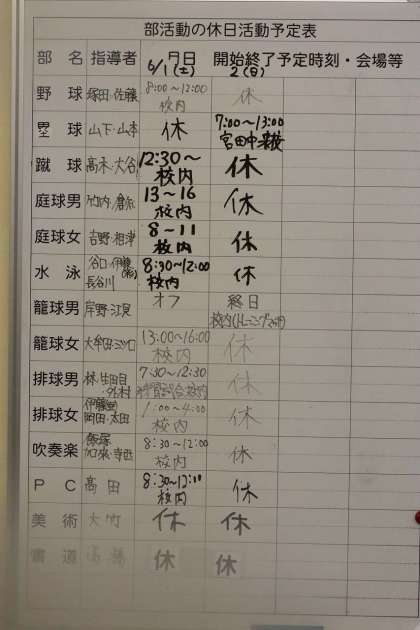 部活動の休日活動予定表
部 名 指導者 月日 開始終了予定時刻・会場等
6/1(土) 2(日)
野 球 塚田・佐藤 8:00~12:00 校内 休
塁 球 山下・山本 休 7:00~13:00
蹴 球 高木・大谷 12:30~ 校内 休
庭球男 13~16 校内 休
庭球女 吉野・相津 8~11 校内 休
水 泳 谷口・伊藤 長谷川 8:30~12:00 校内 休
籠球男 岸野・江見 オフ 終日
籠球女 13:00~16:00 校内 休
排球男 林・生田目 7:30~12:30 休
排球女 岡田・太田 1:00~4:00 校内 休
吹奏楽 飯塚 加来・寺西 8:30~12:00 校内 休
P C 高田 校内 休
美 術 大町 休 休
書 道 休 休